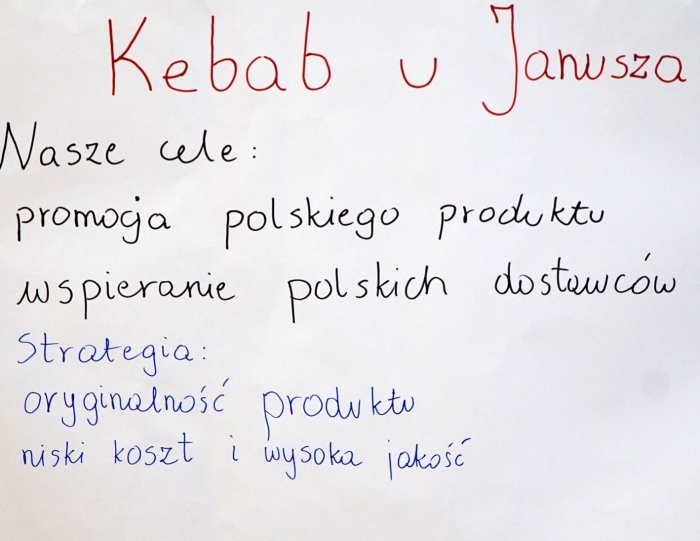 Kebab u Janusza
Nasze cele:
promocja polskiego produktu
wspieranie polskich dostawców
Strategia:
oryginalność produktu
niski koszt i wysoka jakość